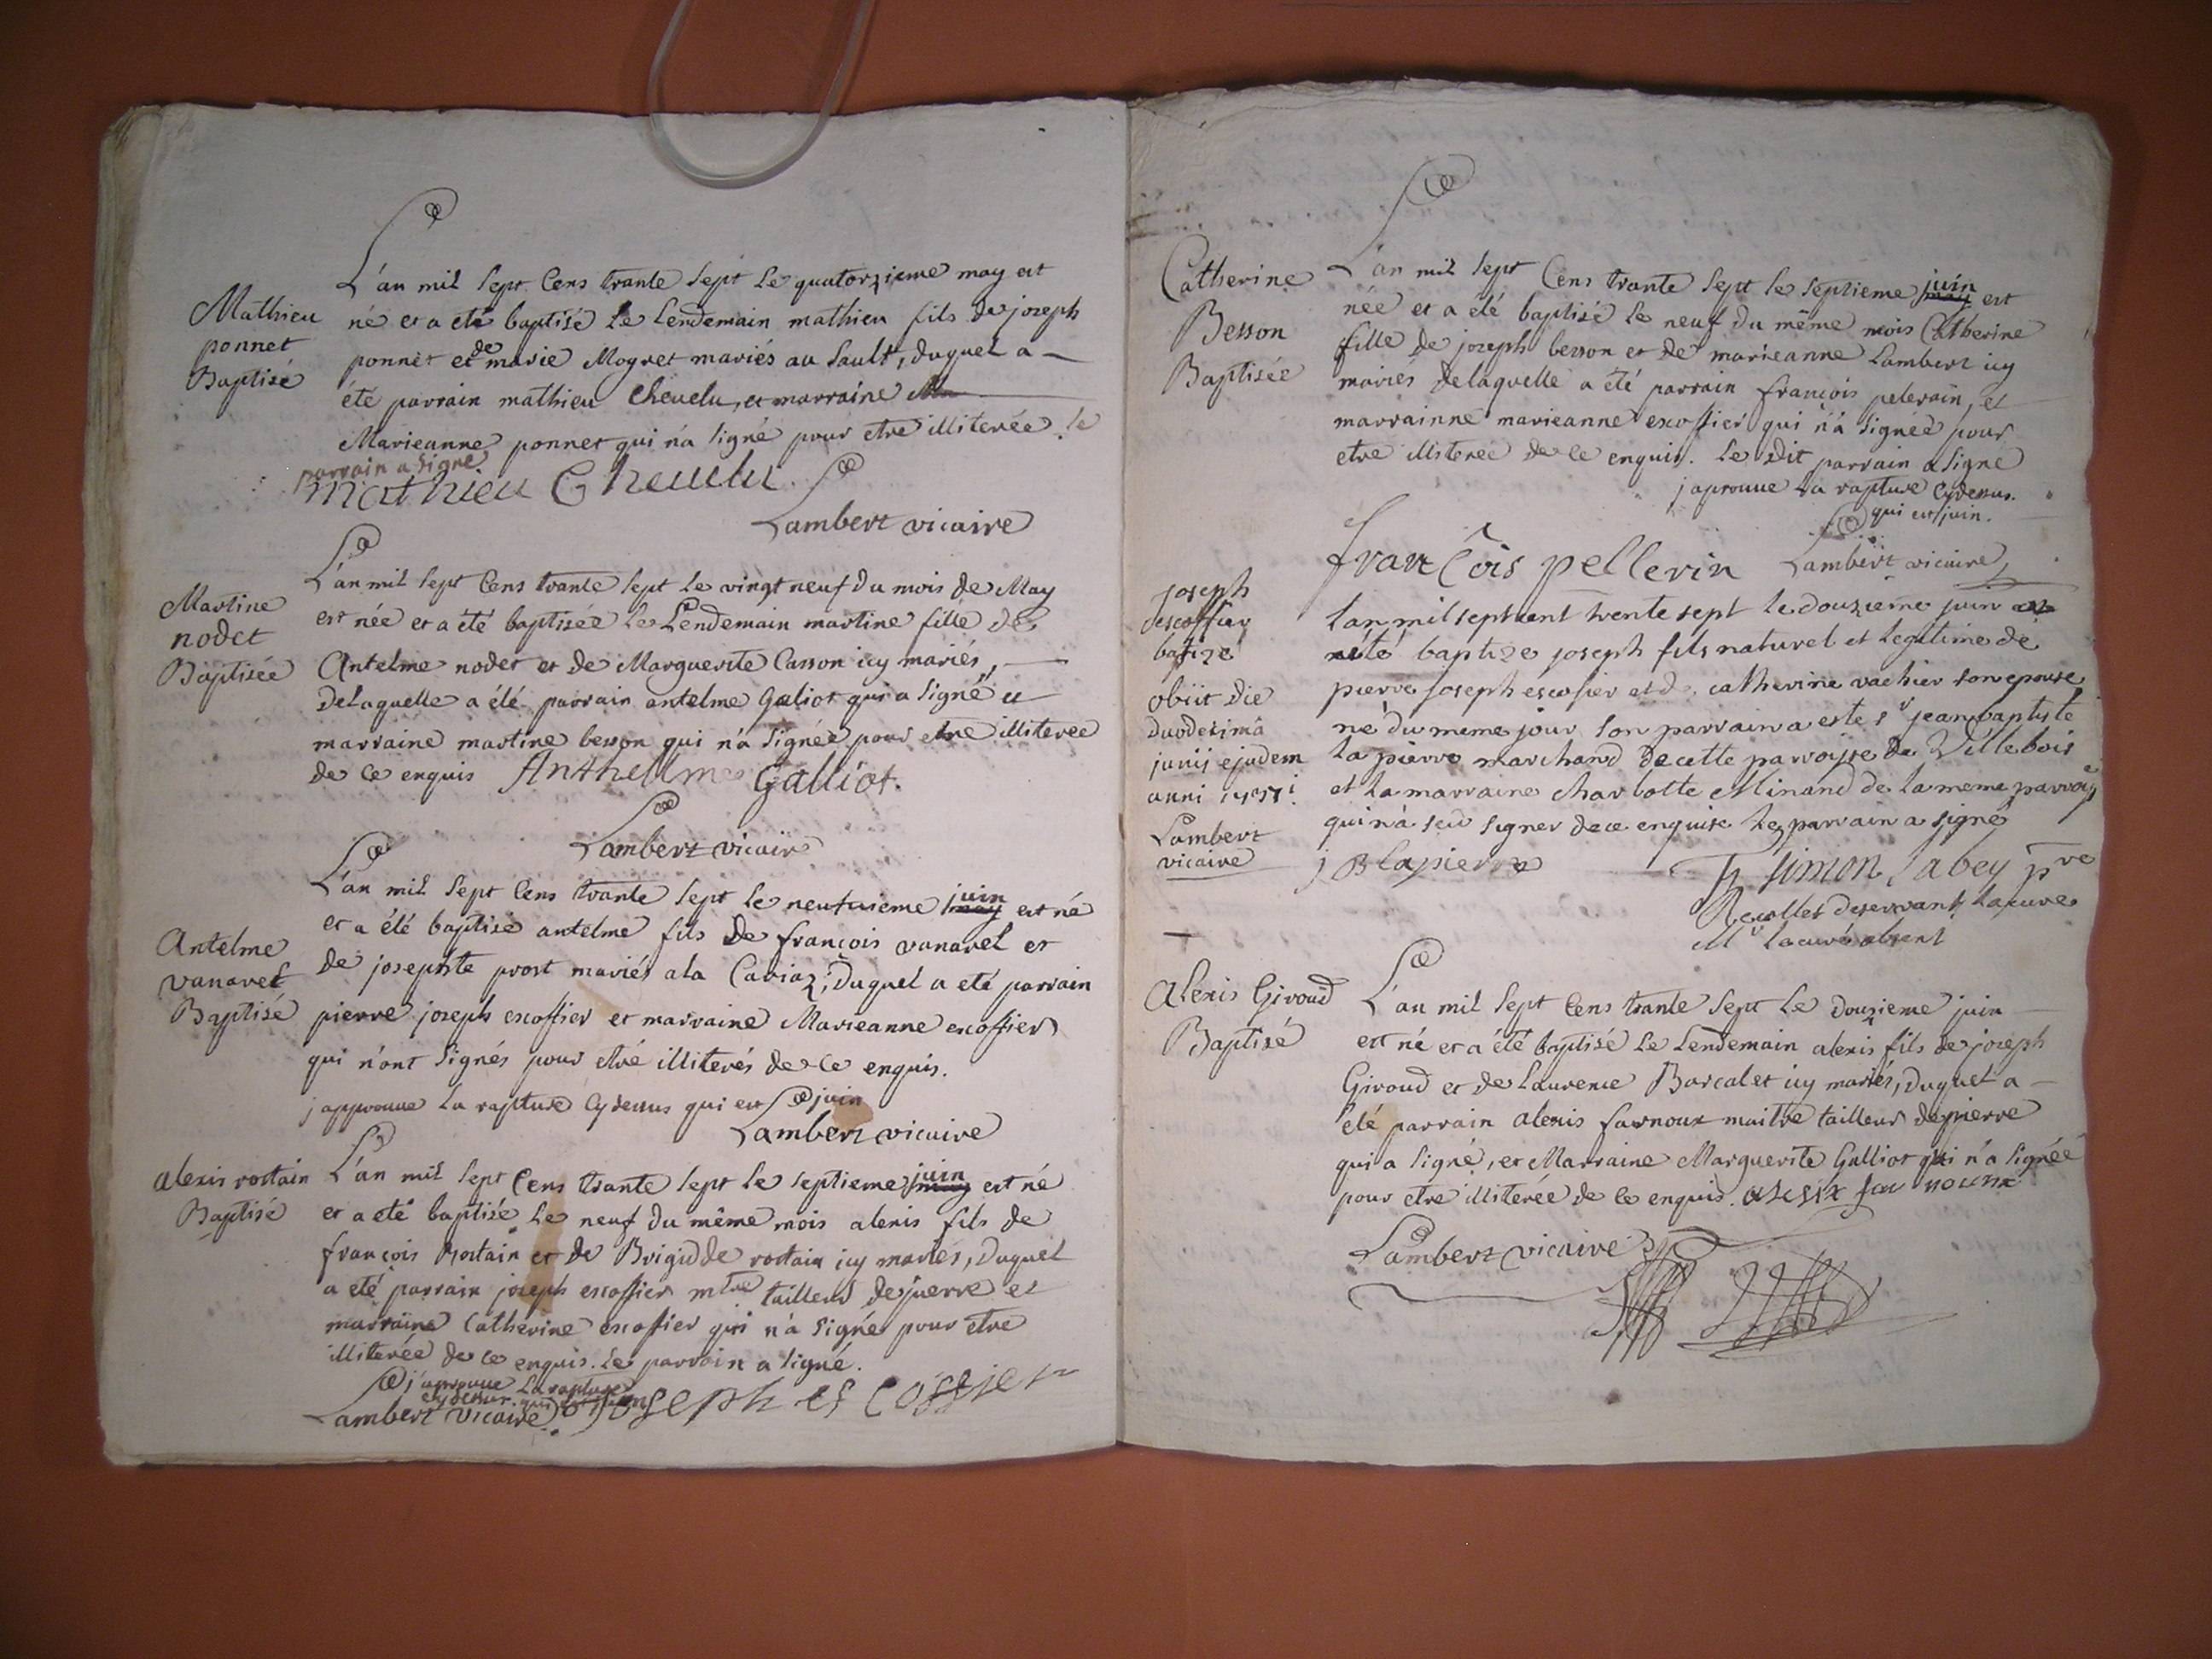 Mathieu
ponnet
Baptisé
L'an mil sept Cens trante sept le quatorzieme may est
né et a eté baptisé le Lendemain mathieu fils de joseph
ponnet et de marie Mognet mariés au Sault, duquel a
été parrain mathieu Chevelu, et marraine
Marieanne ponnet qui n'a signé pour etre illiterée le
parrain a signé
mathieu Cheuelu
Lambert vicaire
Martine
nodet
Baptisée
L'an mil sept Cens trante sept le vingt neuf du mois de May
est née et a été baptisée le Lendemain martine fille de
Antelme nodet et de Marguerite Casson icy mariés,
delaquelle a été parrain antelme Galiot qui a signé et
marraine martine besson qui n'a signée pour etre illiterée
de ce enquis Anthellme Galliot.
Lambert vicaire
Antelme
vanarel
Baptisé
L'an mil sept Cens trante sept le neufvieme juin est né
et a été baptisé antelme fils de françois vanarel et
de josephte prost mariés a la Caviaz, duquel a eté parrain
pierre joseph escoffier et marraine Marieanne escoffier
qui n'ont signés pour etré illiterés de ce enquis.
j'approuue la rapture cydessus qui est juin
Lambert vicaire
alexis rostain
Baptisé
L'an mil sept Cens trante sept le septieme juin est né
et a eté baptisé le neuf du même mois alexis fils de
françois Rostain et de Brigidde rostain icy mariés, duquel
a eté parrain joseph escoffier mtre tailleur de pierre et
marraine Catherine escoffier qui n'a signée pour etre
illiterée de ce enquis. le parrain a signé.
j'aprouue la rapture
cydessus qui est juin
Lambert vicaire joseph escoffier
Catherine
Besson
Baptisée
L'an mil sept Cens trante sept le septieme juin est
née et a été baptisé le neuf du même mois Catherine
fille de joseph besson et de marieanne Lambert icy
mariés delaquelle a été parrain françois pelerain, et
marrainne marieanne escoffier qui n'a signée pour
etre illiterée de ce enquis. le dit parrain a signé
j'aprouue la rapture cydessus.
qui est juin.
françois pellerin Lambert vicaire
joseph
escoffier
batize
obiit die
duodecima
junij ejusdem
anni 1737
Lambert
vicaire
lan mil sept cent trente sept le douzieme juin a
eté baptize joseph fils naturel et legitime de
pierre joseph escofier et de catherine vachier son epouse
né du meme jour son parrain a este sr jean baptiste
la pierre marchand de cette parroisse de Villebois
et la marraine charlotte Minand de la meme parroisse
qui n'a seu signer de ce enquise le parrain a signé
j B lapierre fr simon Labey pre
Recollet deservant la cure
Mr le curé absent
Alexis Giroud
Baptisé
L'an mil sept Cens trante sept le douzieme juin
est né et a été baptisé le Lendemain alexis fils de joseph
Giroud et de Laurence Barcalet icy mariés, duquel a
eté parrain alexis farnoux maitre tailleur de pierre
qui a signé, et Marraine Marguerite Galliot qui n'a signée
pour etre illiterée de ce enquis. alesix far noux
Lambert vicaire